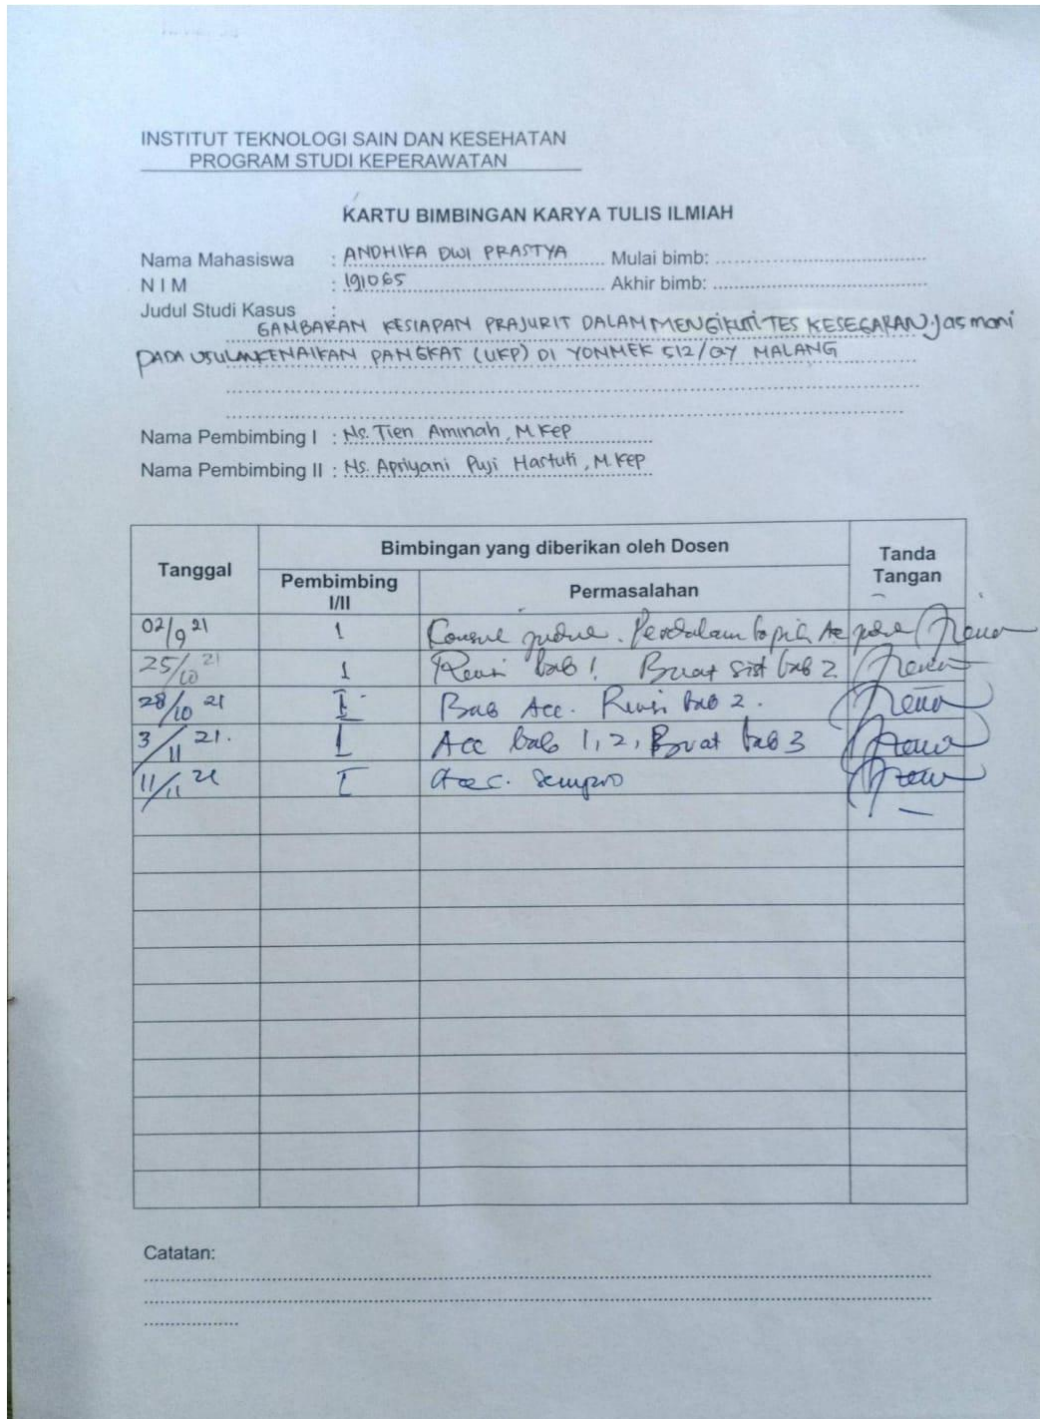 INSTITUT TEKNOLOGI SAIN DAN KESEHATAN
PROGRAM STUDI KEPERAWATAN
KARTU BIMBINGAN KARYA TULIS ILMIAH
Nama Mahasiswa : ANDHIKA DWI PRASTYA Mulai bimb:
N I M : 191065 Akhir bimb:
Judul Studi Kasus :
GAMBARAN KESIAPAN PRAJURIT DALAM MENGIKUTI TES KESEGARAN Jasmani
PADA USULAN KENAIKAN PANGKAT (UKP) DI YONMEK 512/QY MALANG
Nama Pembimbing I : Ns. Tien Aminah, M.Kep
Nama Pembimbing II : Ns. Apriyani Puji Hastuti, M.Kep
Bimbingan yang diberikan oleh Dosen
Tanggal Tanda Tangan
Pembimbing I/II Permasalahan
02/9 21 1 Consul
25/10 21 1 Revisi bab 1. Buat sist bab 2.
28/10 21 I Bab Acc. Revisi bab 2.
3/11 21. I Acc bab 1, 2, Buat bab 3
11/11 21 I Acc. Sempro
Catatan: